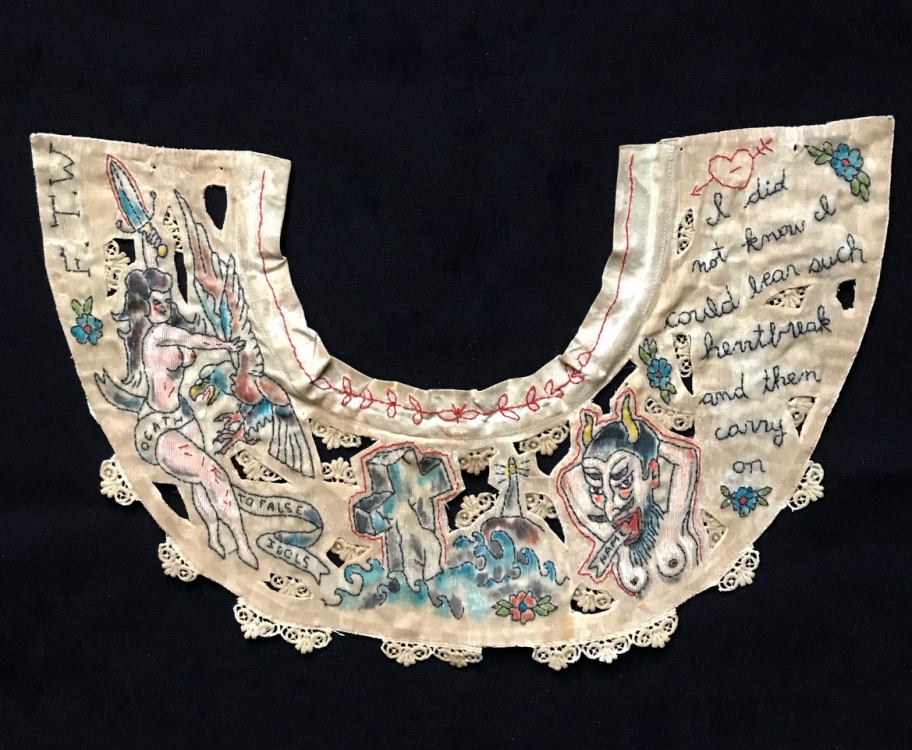 F.T.W
DEATH
TO FALSE
IDOLS
HATE
I did
not know I
could bear such
heartbreak
and then
carry
on